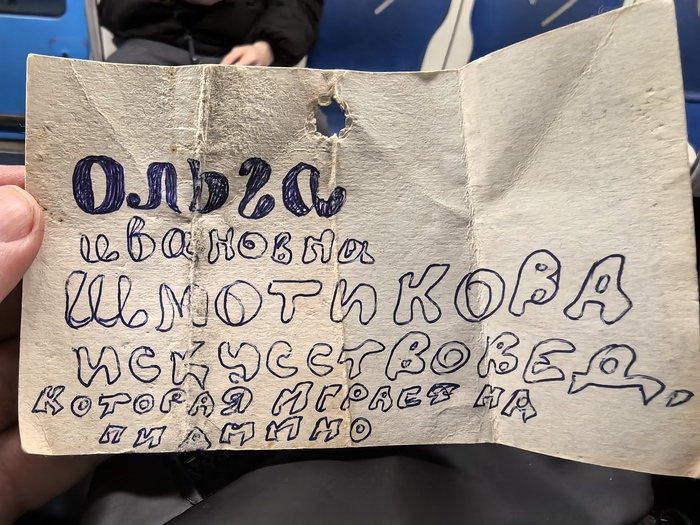 Ольга
ивановна
ШМОТИКОВА
ИСКУССТВОВЕД,
КОТОРАЯ ИГРАЕТ НА
ПИАНИНО